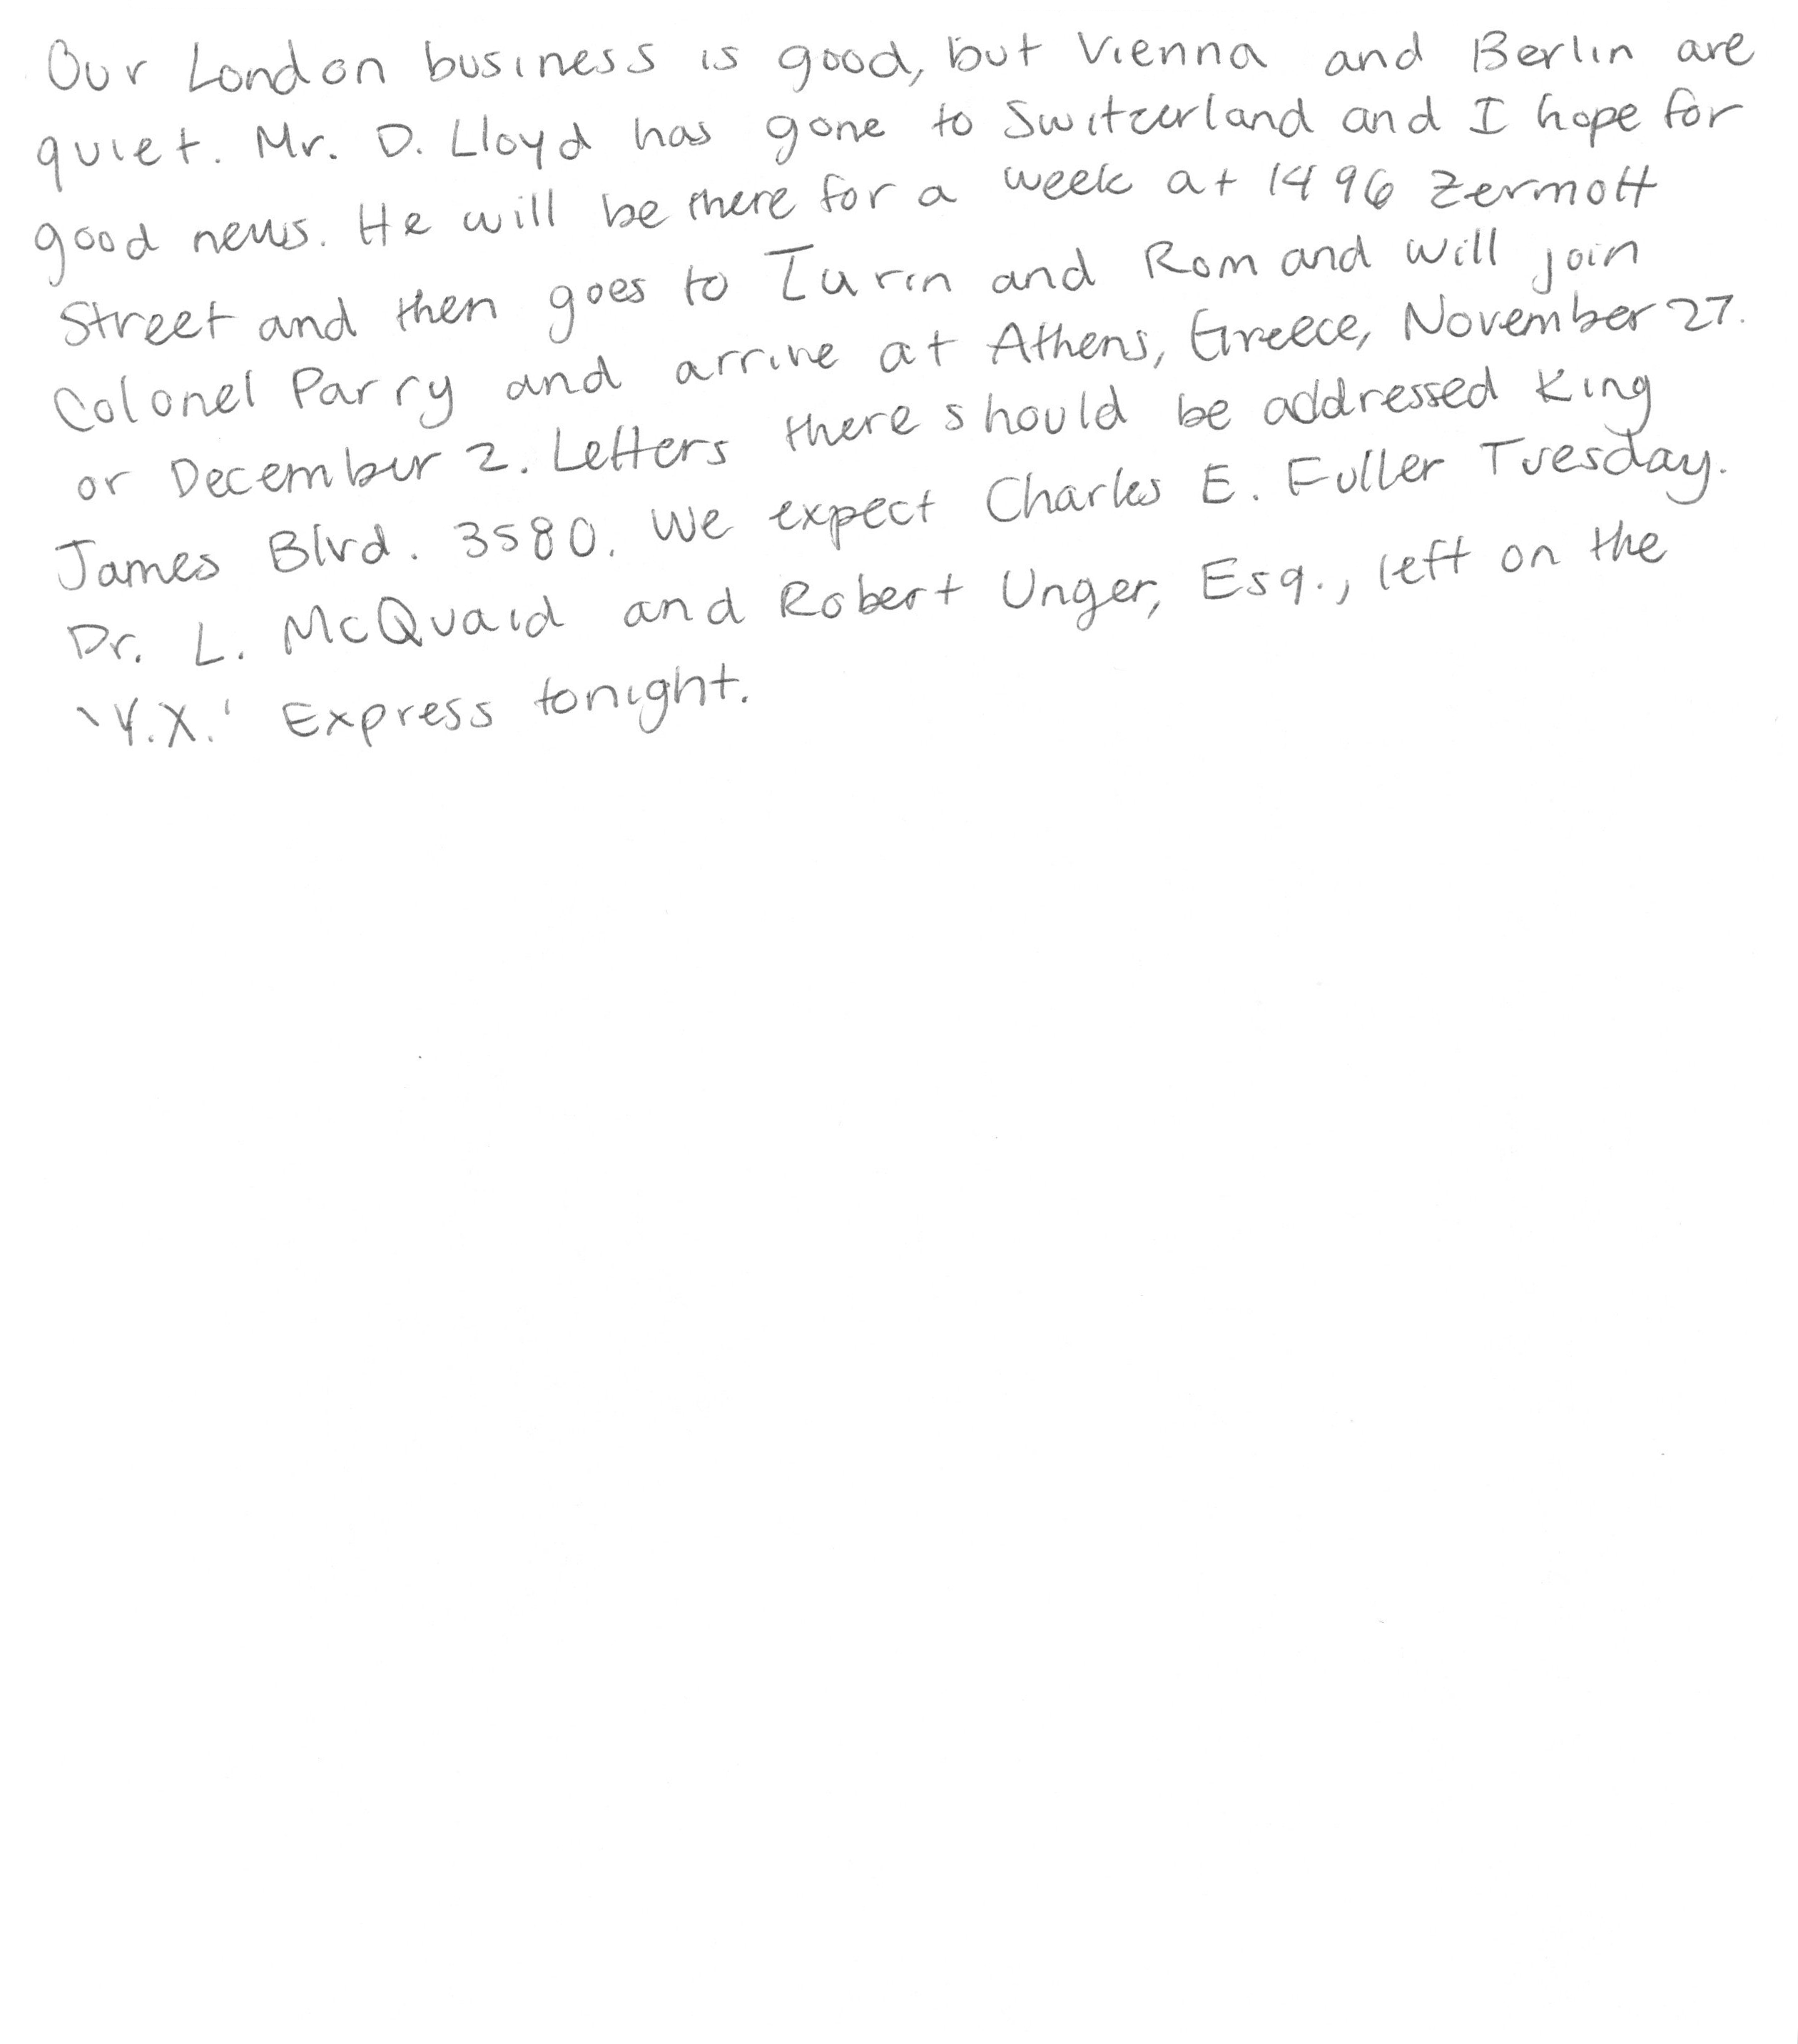 Our London business is good, but Vienna and Berlin are
quiet. Mr. D. Lloyd has gone to Switzerland and I hope for
good news. He will be there for a week at 1496 Zermott
Street and then goes to Turin and Rom and will join
Colonel Parry and arrive at Athens, Greece, November 27.
or December 2. Letters there should be addressed King
James Blvd. 3580. We expect Charles E. Fuller Tuesday.
Dr. L. McQuaid and Robert Unger, Esq., left on the
'Y.X.' Express tonight.